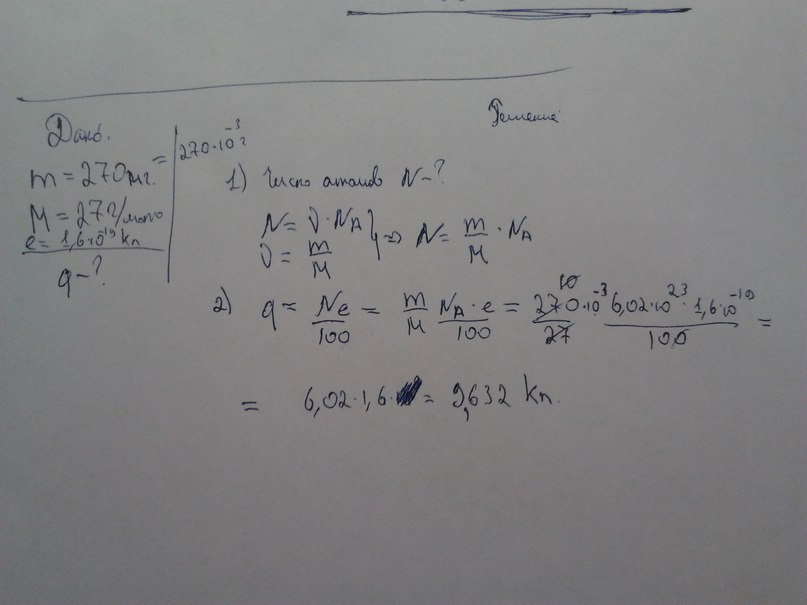 Дано.
m = 270 мг. = 270·10⁻³ г
M = 27 г/моль
e = 1,6·10⁻¹⁹ Кл
q - ?
Решение:
1) Число атомов N - ?
N = ν · N_A
ν = m/M } => N = m/M · N_A
2) q = Ne/100 = m/M N_A · e/100 = 270·10⁻³/27 6,02·10²³·1,6·10⁻¹⁹/100 =
10
= 6,02·1,6· = 9,632 Кл.